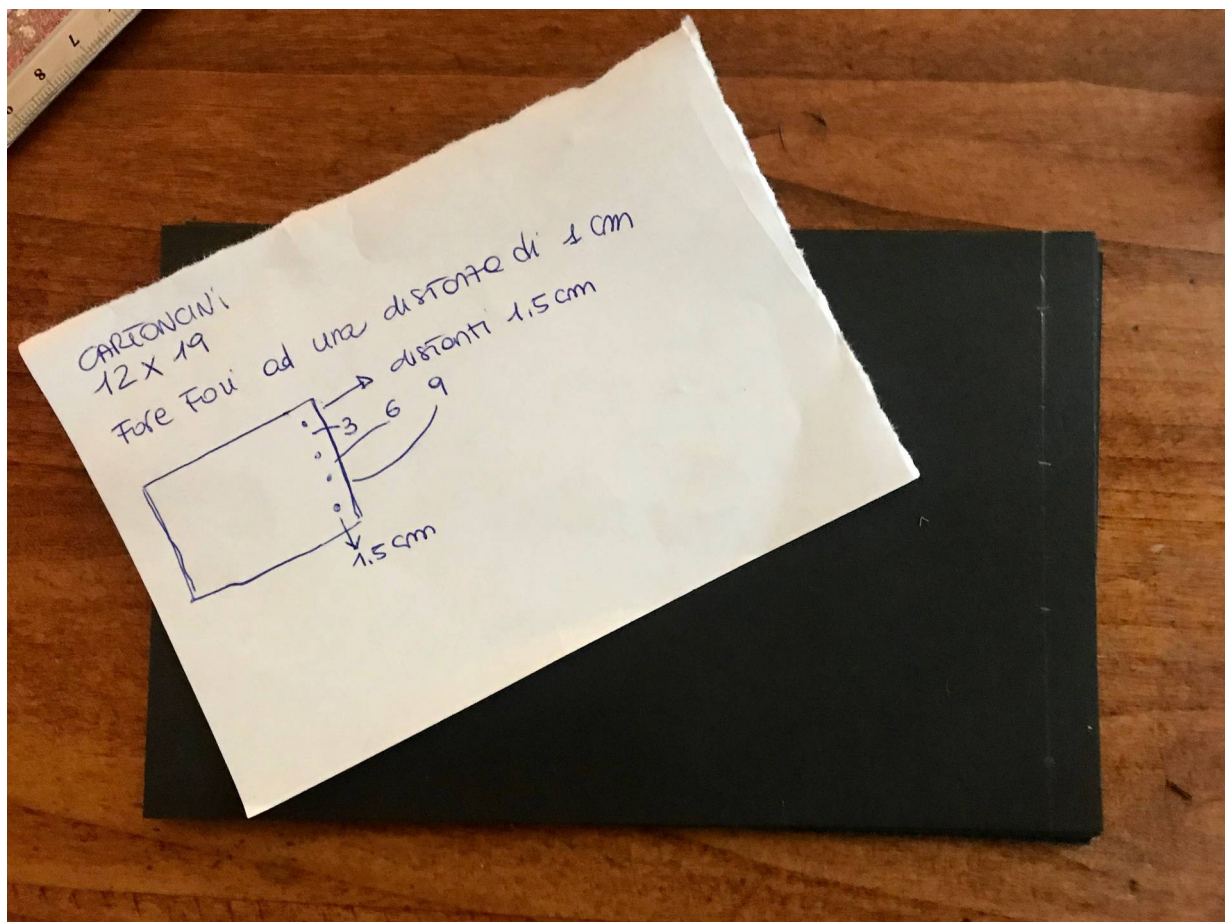 CARTONCINI
12 X 19
Fare Fori ad una distanza di 1 cm
distanti 1,5 cm
3 6 9
1,5 cm
7
8